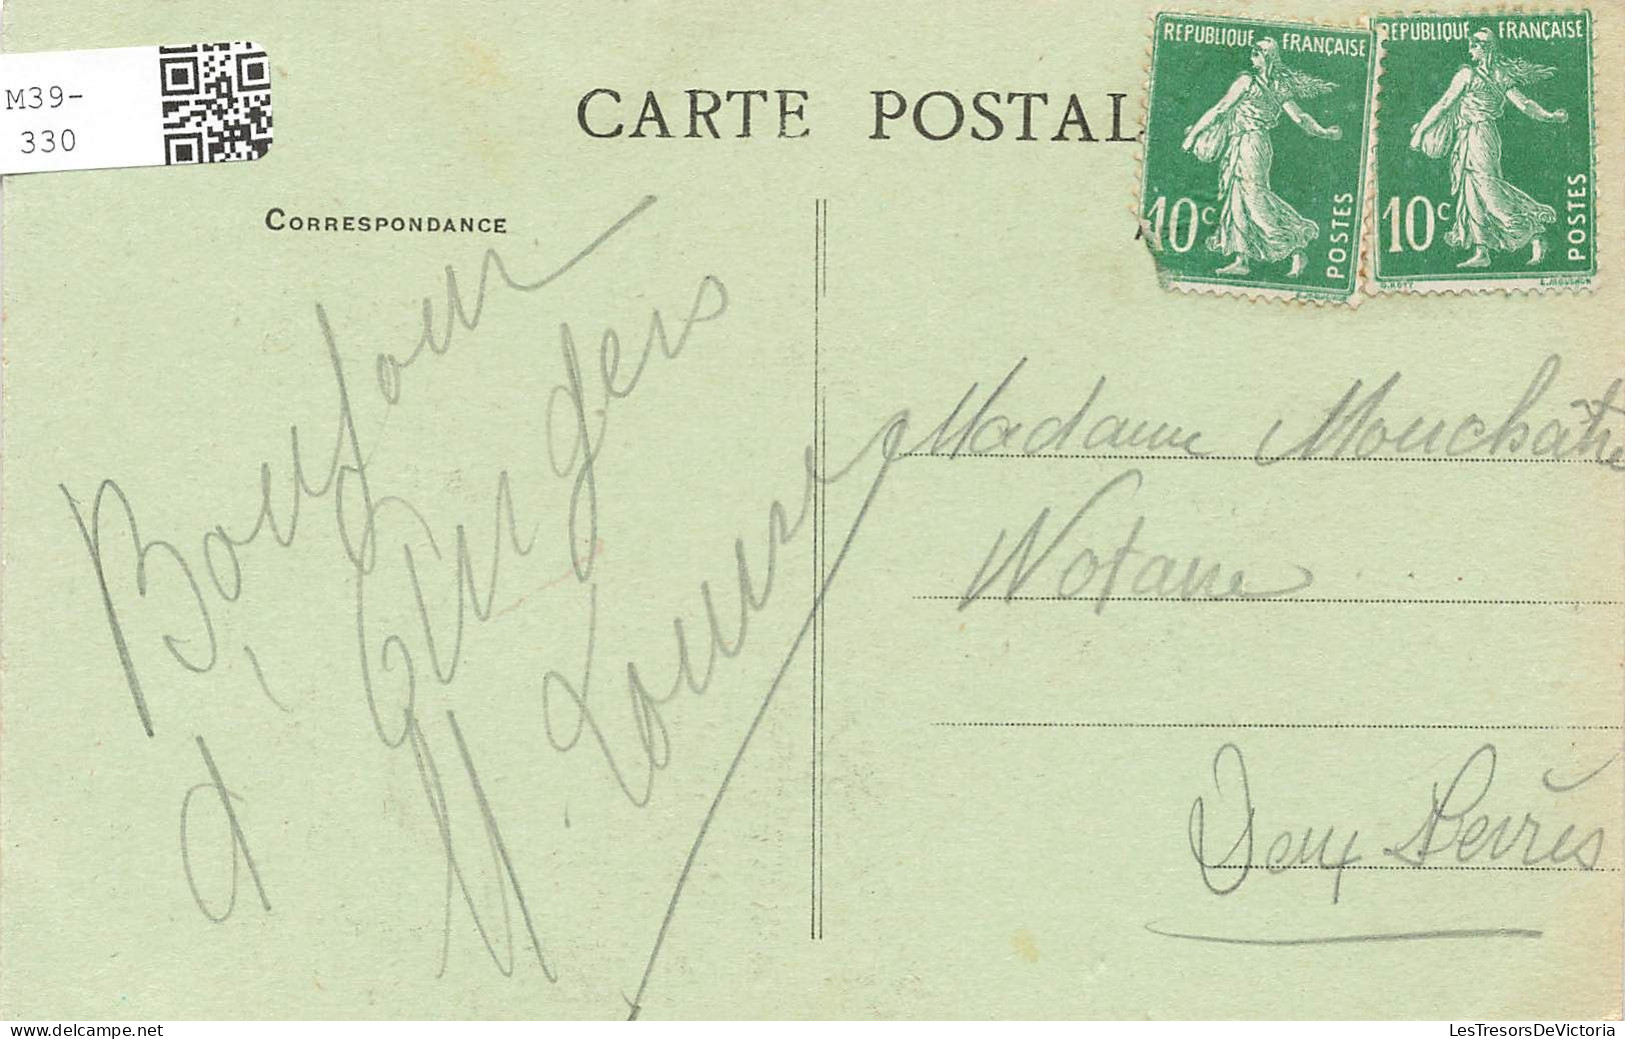 M39-
330
CARTE POSTAL
REPUBLIQUE FRANÇAISE
10c
POSTES
REPUBLIQUE FRANÇAISE
10c
POSTES
O. ROTY
E. MOUCHON
CORRESPONDANCE
Bonjour
d'Angers
M. Louise
Madame Mouchâtre
Notaire
Deux Sèvres
www.delcampe.net
LesTresorsDeVictoria